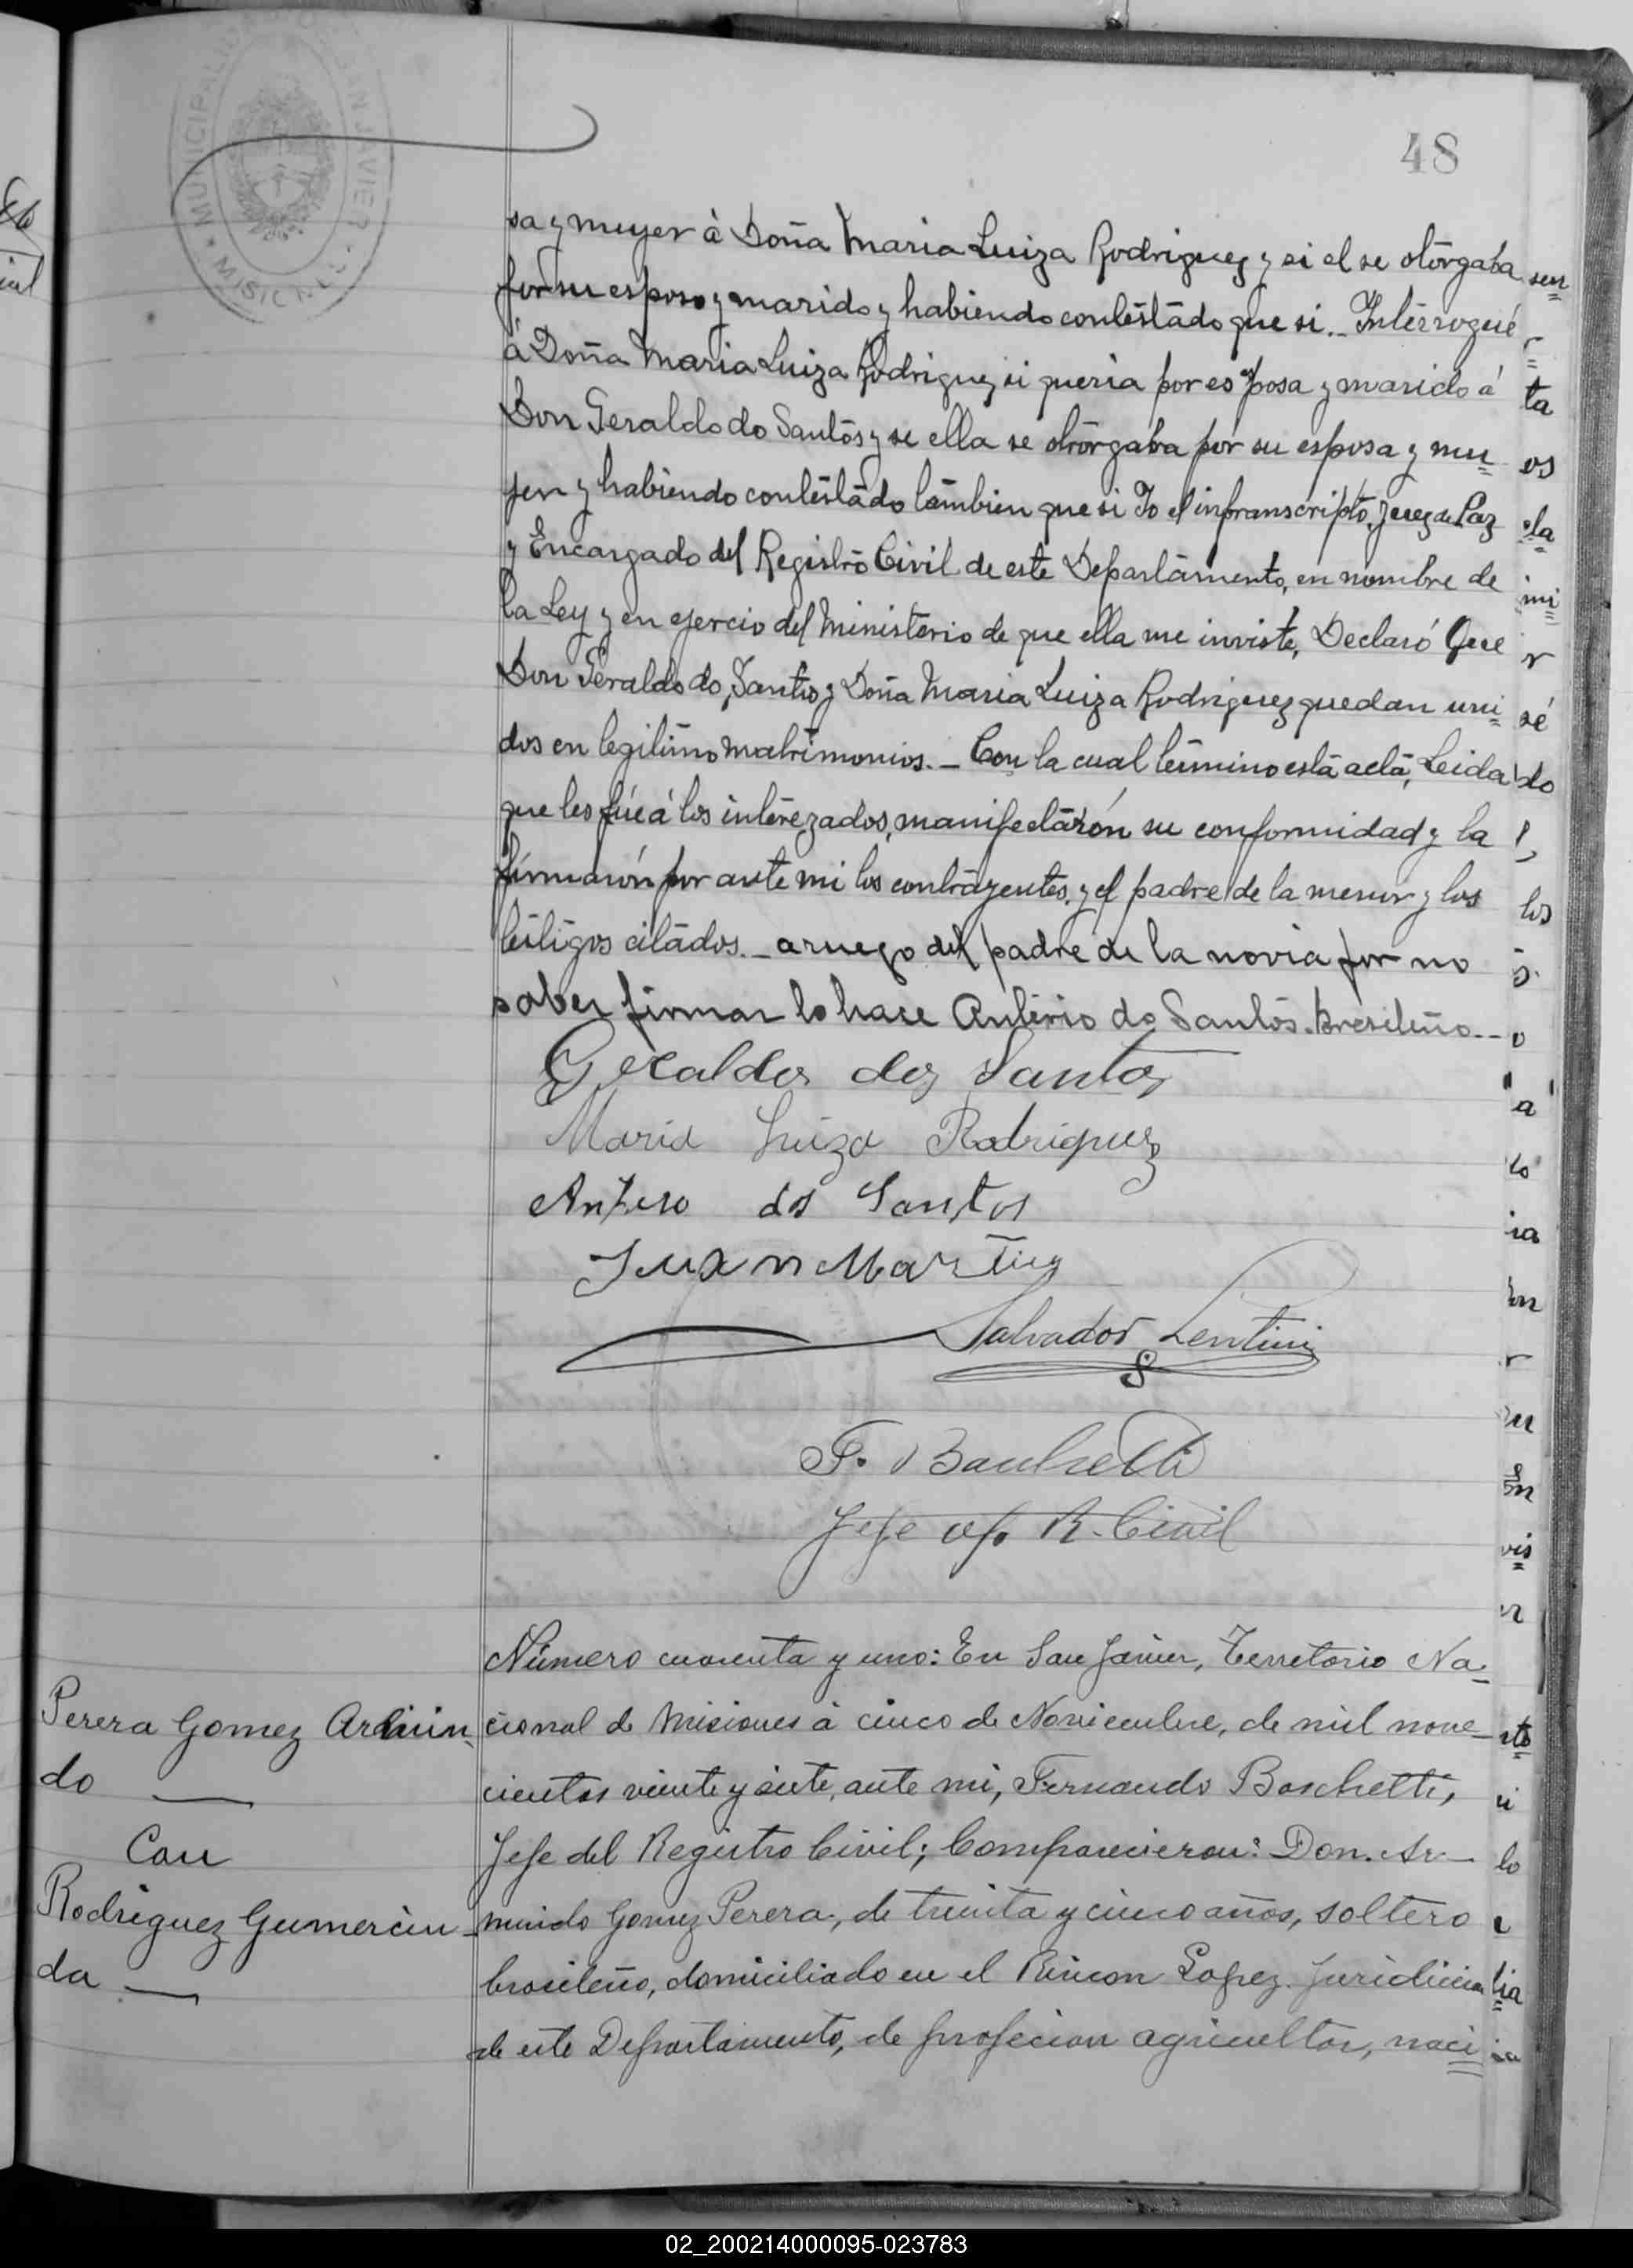 48
MUNICIPALIDAD SAN JAVIER
MISIONES
sa y muyer à Doña Maria Luiza Rodriguez y si el se otorgaba
por su esposo y marido y habiendo contestado que si. _ Interrogué
á Doña Maria Luiza Rodriguez si queria por es posa y marido á
Don Geraldo do Santos y se ella se otorgaba por su esposa y mu=
jer y habiendo contestado tambien que si Yo el infranscripto, Juez de Paz
y Encargado del Registro Civil de este Departamento, en nombre de
la Ley y en ejercio del Ministerio de que ella me inviste, Declaró Que
Don Geraldo do Santos y Doña Maria Luiza Rodriguez quedan uni=
dos en legitimo matrimonios. _ Con la cual termino esta acta, Leida
que les fué á los interezados, manifestarón su conformidad y la
firmarón por ante mi los contrayentes, y el padre de la menor y los
testigos citados. _ a ruego del padre de la novia por no
saber firmar lo hace Anterio do Santos. bresileño. _
Geraldos dos Santos
Maria Luiza Rodriguez
Antero dos Santos
Juan Martinz
Salvador Lentini
F. Boschetti
Jefe of. R. Civil
Perera Gomez Armin
do
Con
Rodriguez Gumercin
da
Número cuarenta y uno: En San Javier, Territorio Na=
cional de Misiones á cinco de Noviembre, de mil nove-
cientos veinte y siete, ante mi, Fernando Boschetti,
Jefe del Registro Civil; Comparecieron: Don. Ar-
mindo Gomez Perera, de treinta y cinco años, soltero
brasileño, domiciliado en el Rincon Lopez. Juridicion
de este Departamento, de profecion agricultor, naci=
02_200214000095-023783